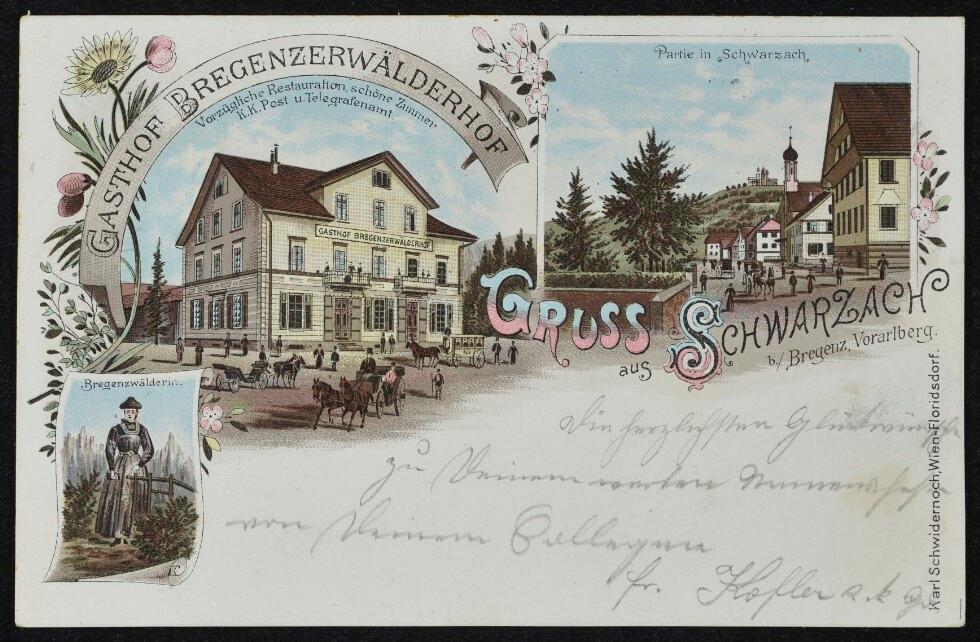 GASTHOF BREGENZERWÄLDERHOF
Vorzügliche Restauration, schöne Zimmer
K.K. Post u. Telegrafenamt.
GASTHOF BREGENZERWÄLDERHOF
Partie in Schwarzach
GRUSS
aus SCHWARZACH
b./ Bregenz, Vorarlberg.
Bregenzwälderin.
Die herzlichsten Glückwünsche
zu Deinem werten Namensfeste
von Deinem Collegen
fr. Kofler
Karl Schwidernoch, Wien-Floridsdorf.